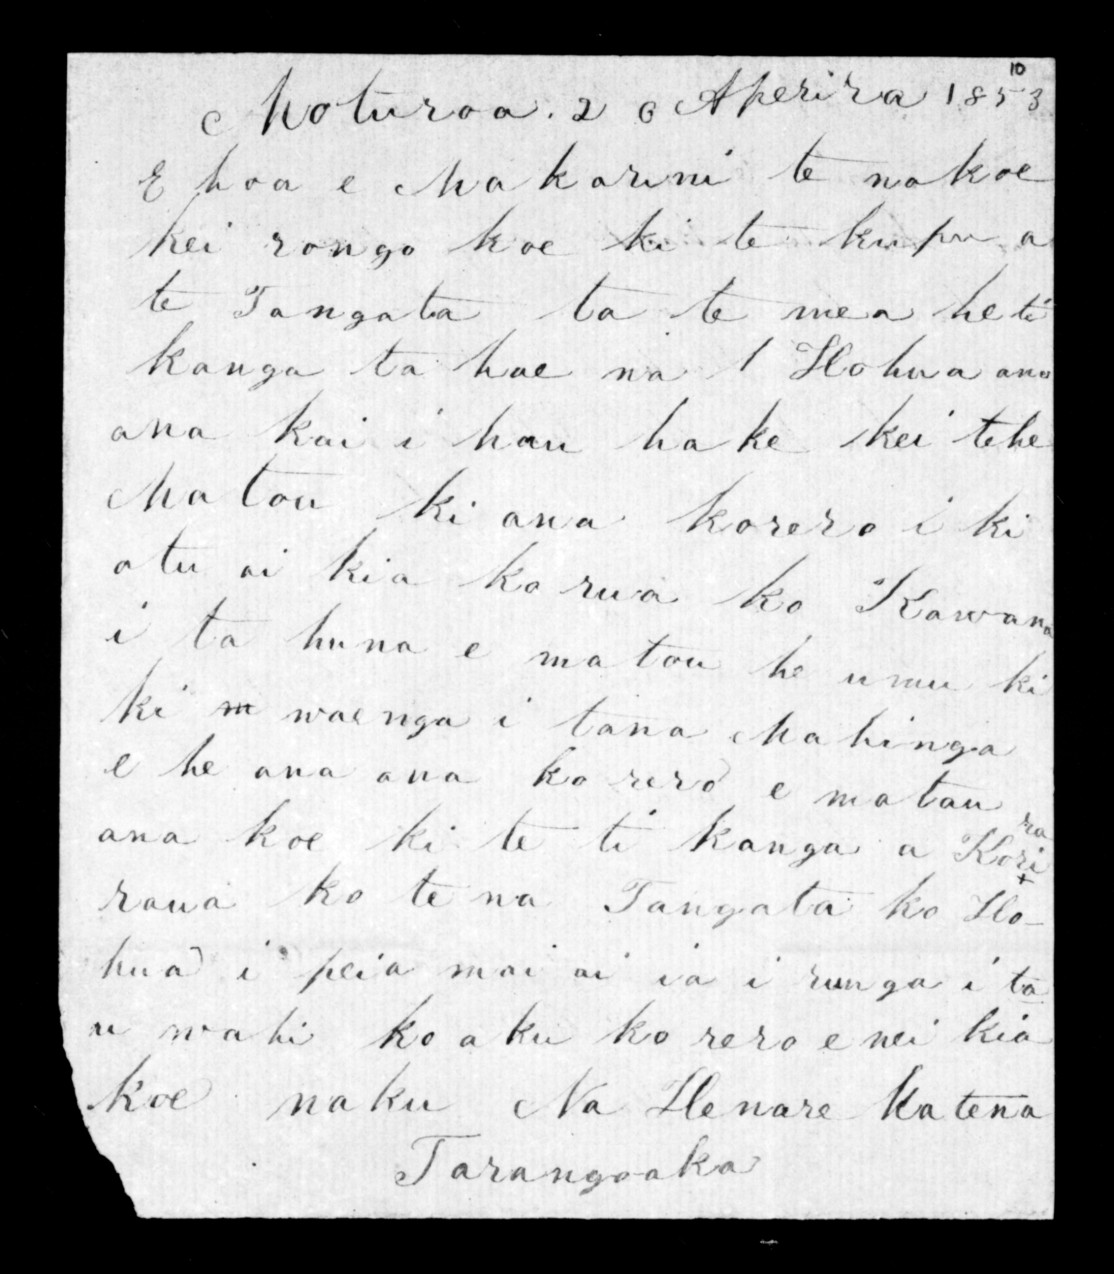 10
Moturoa. 26 Aperira 1853
E hoa e Makarini te nakoe
kei rongo koe ki te kupu a
te Tangata ta te mea he ti
kanga ta hae na / Hohua ano
ana kai i hau hake kei tehe
Matou ki ana korero i ki
atu ai kia ko rua ko Kawana
i ta huna e matou he umu ki
ki waenga i tana Mahinga
e he ana ana ko rero e matau
ana koe ki te ti kanga a Kori
ma
raua ko te na Tangata ko Ho-
hua i peia mai ai ia i runga i ta
u wahi ko aku ko rero e nei kia
koe naku Na Henare Katena
Tarangoaka